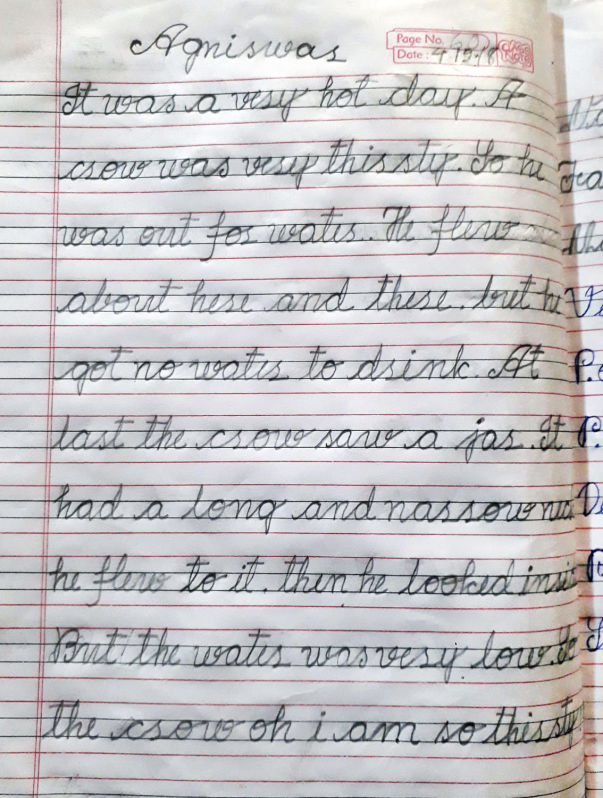 Agniswas
Page No.
Date: 4-12-18
Class Note
It was a very hot day. A
crow was very thirsty. So he
was out for water. He flew
about here and there. but he
got no water to drink. At
last the crow saw a jar. It
had a long and narrow
he flew to it. then he looked
But the water was very low. So
the crow oh i am so thirsty